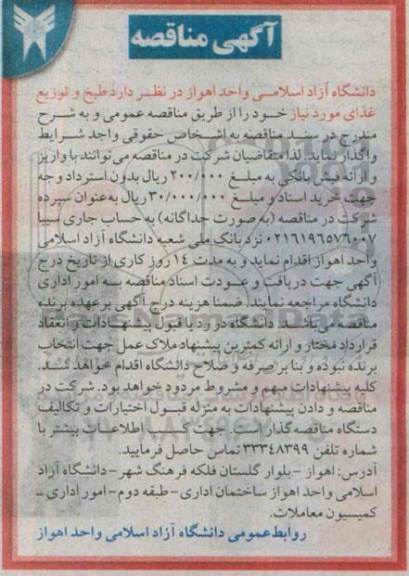 آگهی مناقصه
دانشگاه آزاد اسلامی واحد اهواز در نظر دارد طبخ و توزیع
غذای مورد نیاز خود را از طریق مناقصه عمومی و به شرح
مندرج در سند مناقصه به اشخاص حقوقی واجد شرایط
واگذار نماید. لذا متقاضیان شرکت در مناقصه می‌توانند با واریز
و ارائه فیش بانکی به مبلغ ۲۰۰/۰۰۰ ریال بدون استرداد وجه
جهت خرید اسناد و مبلغ ۳۰/۰۰۰/۰۰۰ ریال به عنوان سپرده
شرکت در مناقصه (به صورت جداگانه) به حساب جاری سیبا
۰۲۱۶۱۹۶۵۷۶۰۰۷ نزد بانک ملی شعبه دانشگاه آزاد اسلامی
واحد اهواز اقدام نماید و به مدت ۱۴ روز کاری از تاریخ درج
آگهی جهت دریافت و عودت اسناد مناقصه به امور اداری
دانشگاه مراجعه نمایند. ضمنا هزینه درج آگهی بر عهده برنده
مناقصه می‌باشد. دانشگاه در رد یا قبول پیشنهادات و انعقاد
قرارداد مختار و ارائه کمترین پیشنهاد ملاک عمل جهت انتخاب
برنده نبوده و بنا بر صرفه و صلاح دانشگاه اقدام خواهد شد.
کلیه پیشنهادات مبهم و مشروط مردود خواهد بود. شرکت در
مناقصه و دادن پیشنهادات به منزله قبول اختیارات و تکالیف
دستگاه مناقصه گذار است. جهت کسب اطلاعات بیشتر با
شماره تلفن ۳۳۳۴۸۳۹۹ تماس حاصل فرمایید.
آدرس: اهواز - بلوار گلستان فلکه فرهنگ شهر - دانشگاه آزاد
اسلامی واحد اهواز ساختمان اداری - طبقه دوم - امور اداری -
کمیسیون معاملات.
روابط عمومی دانشگاه آزاد اسلامی واحد اهواز